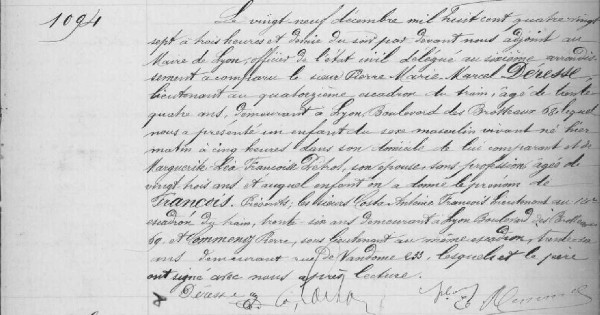 1094
Le vingt-neuf décembre mil huit cent quatre vingt
sept à trois heures et demie du soir par devant nous adjoint au
Maire de Lyon, officier de l'état civil délégué au sixième arrondis-
sement a comparu le sieur Pierre Marie Marcel Déresse
lieutenant au quatorzième escadron du train, âgé de trente
quatre ans, demeurant à Lyon Boulevard des Brotteaux 68, lequel
nous a présenté un enfant du sexe masculin vivant né hier
matin à cinq heures dans son domicile de lui comparant et de
Marguerite Léa Françoise son épouse, sans profession âgée de
vingt trois ans et auquel enfant on a donné le prénom de
François. Présents; les sieurs Coste Antoine François lieutenant au 14e
escadron du train, trente-six ans demeurant à Lyon Boulevard des Brotteaux
69. et Pierre, sous lieutenant au même escadron,
ans demeurant rue de Vendome 233, lesquels et le père
ont signé avec nous après lecture.
Déresse